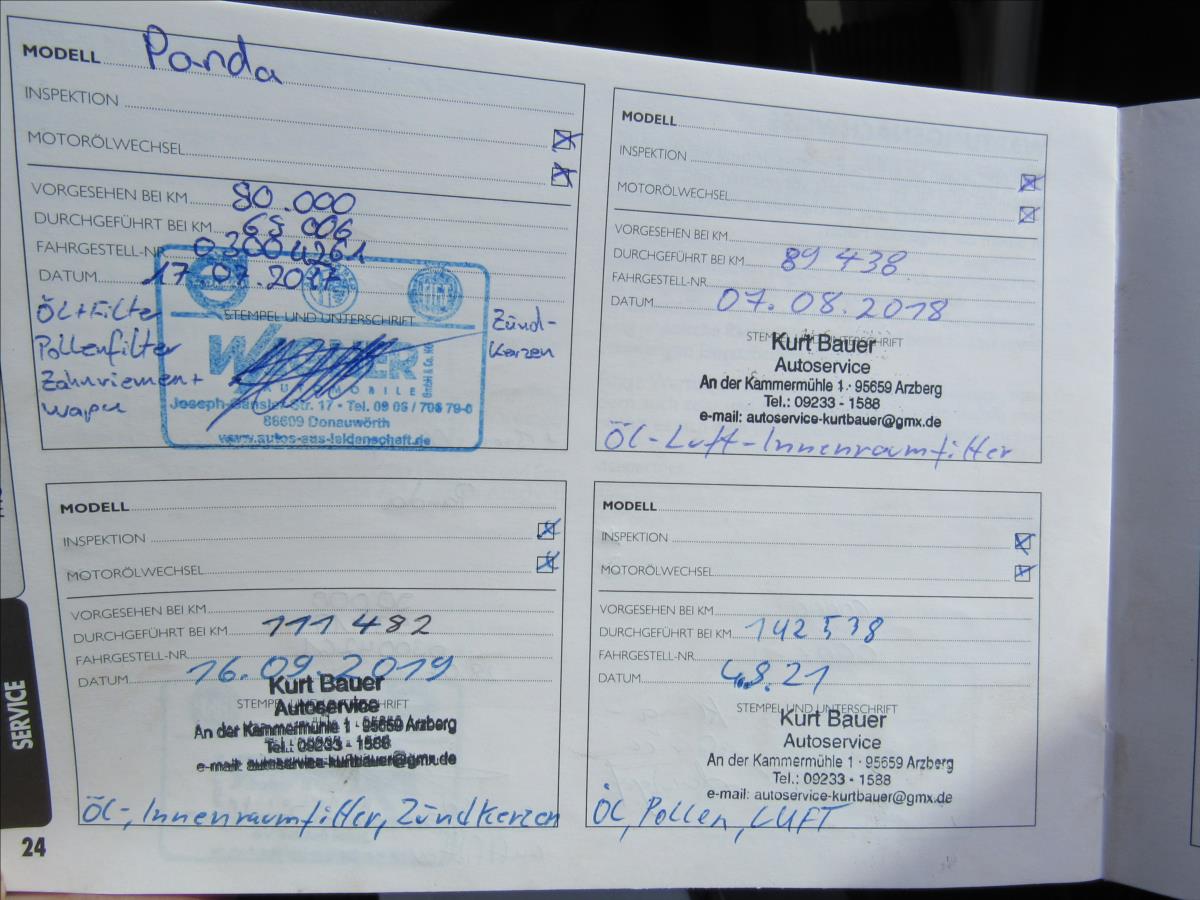 MODELL Panda
INSPEKTION
MOTORÖLWECHSEL
VORGESEHEN BEI KM 80.000
DURCHGEFÜHRT BEI KM 65 006
FAHRGESTELL-NR 03004261
DATUM 17.07.2017
STEMPEL UND UNTERSCHRIFT
Öl+Filter
Pollenfilter
Zahnriemen+
wapu
Zünd-
kerzen
AUTOMOBILE GmbH & Co. KG
Str. 17 • Tel. 09 06 / 706 79-0
86609 Donauwörth
www.autos-aus-leidenschaft.de
MODELL
INSPEKTION
MOTORÖLWECHSEL
VORGESEHEN BEI KM
DURCHGEFÜHRT BEI KM 89 438
FAHRGESTELL-NR
DATUM 07.08.2018
STEMPEL UND UNTERSCHRIFT
Kurt Bauer
Autoservice
An der Kammermühle 1 · 95659 Arzberg
Tel.: 09233 - 1588
e-mail: autoservice-kurtbauer@gmx.de
Öl-Luft-Innenraumfilter
MODELL
INSPEKTION
MOTORÖLWECHSEL
VORGESEHEN BEI KM
DURCHGEFÜHRT BEI KM 111 482
FAHRGESTELL-NR
DATUM 16.09.2019
STEMPEL UND UNTERSCHRIFT
Kurt Bauer
Autoservice
An der Kammermühle 1 · 95659 Arzberg
Tel.: 09233 - 1588
e-mail: autoservice-kurtbauer@gmx.de
Öl-, Innenraumfilter, Zündkerzen
MODELL
INSPEKTION
MOTORÖLWECHSEL
VORGESEHEN BEI KM
DURCHGEFÜHRT BEI KM 142 538
FAHRGESTELL-NR
DATUM 4.8.21
STEMPEL UND UNTERSCHRIFT
Kurt Bauer
Autoservice
An der Kammermühle 1 · 95659 Arzberg
Tel.: 09233 - 1588
e-mail: autoservice-kurtbauer@gmx.de
Öl, Pollen, LUFT
SERVICE
24